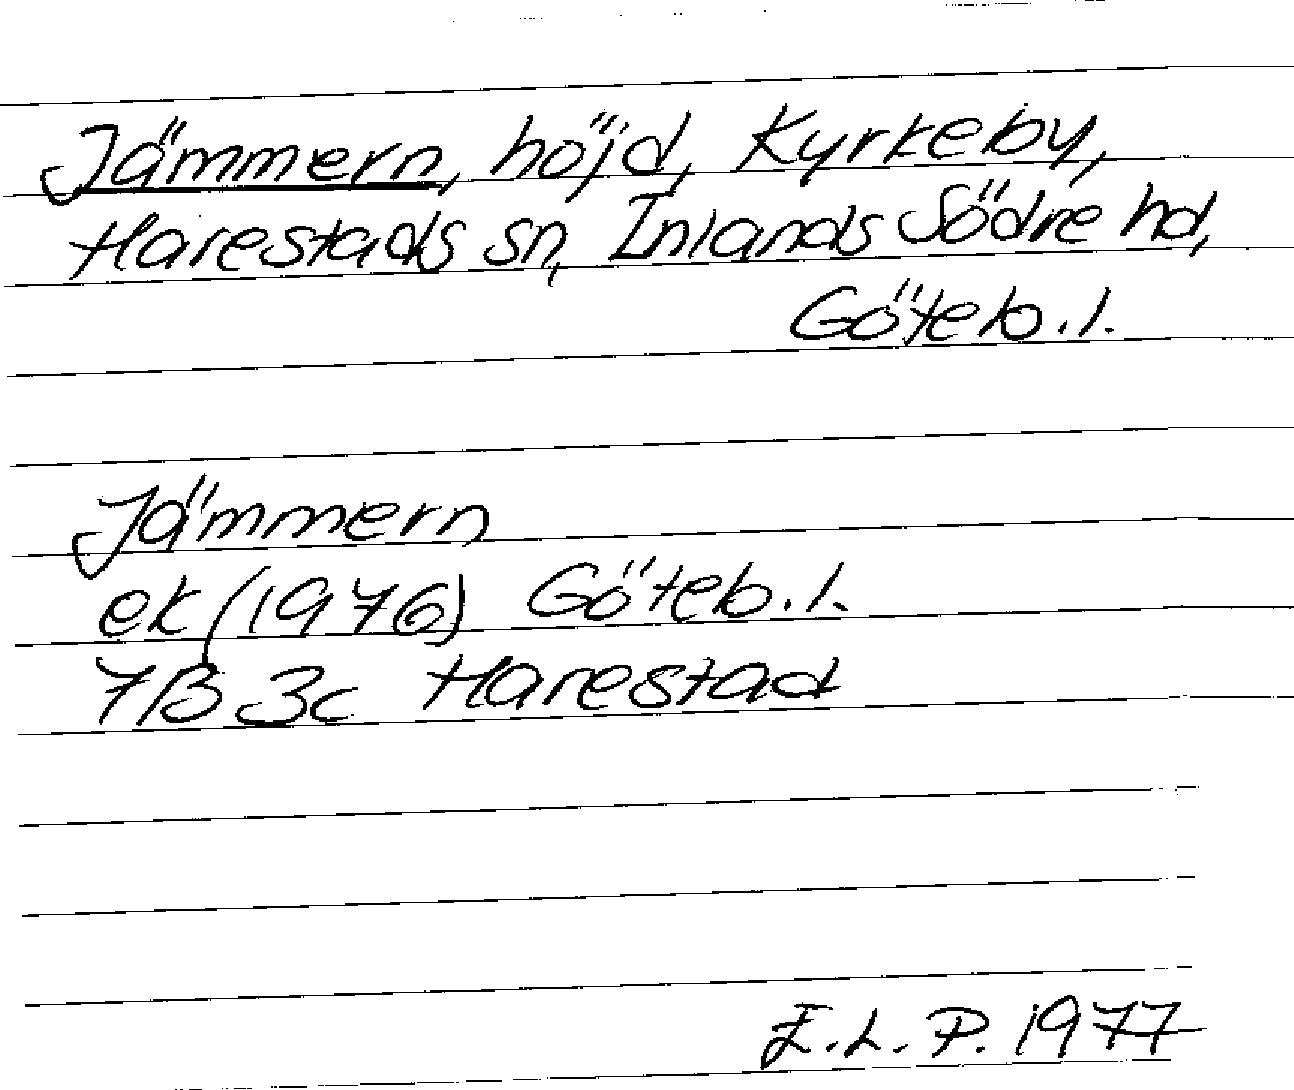 Jämmern, höjd, Kyrkeby,
Harestads sn, Inlands Södre hd,
Göteb.l.
Jämmern
ek (1976) Göteb.l.
7B 3c Harestad
E.L.P. 1977